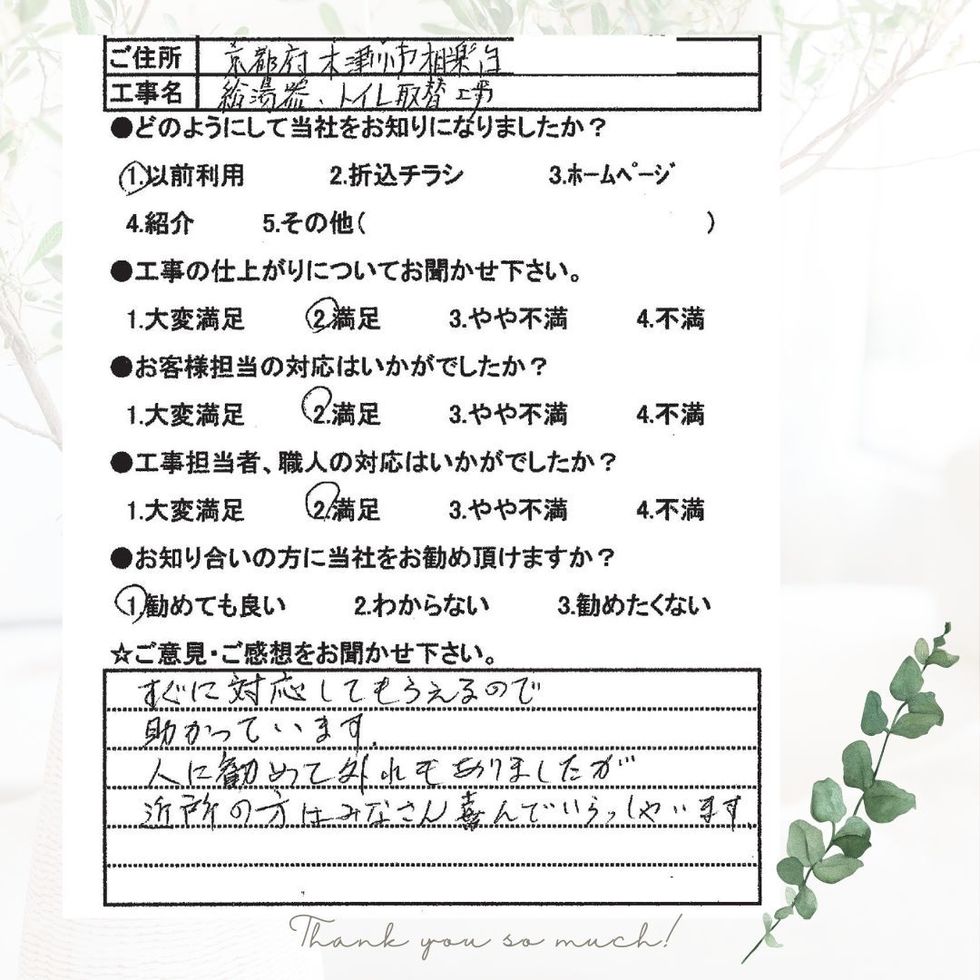 ご住所 京都府木津川市相楽台
工事名 給湯器、トイレ取替工事
●どのようにして当社をお知りになりましたか？
1.以前利用 2.折込チラシ 3.ホームページ
4.紹介 5.その他( )
●工事の仕上がりについてお聞かせ下さい。
1.大変満足 2.満足 3.やや不満 4.不満
●お客様担当の対応はいかがでしたか？
1.大変満足 2.満足 3.やや不満 4.不満
●工事担当者、職人の対応はいかがでしたか？
1.大変満足 2.満足 3.やや不満 4.不満
●お知り合いの方に当社をお勧め頂けますか？
1.勧めても良い 2.わからない 3.勧めたくない
☆ご意見・ご感想をお聞かせ下さい。
すぐに対応してもらえるので
助かっています。
人に勧めて外れもありましたが
近所の方はみなさん喜んでいらっしゃいます。
Thank you so much!